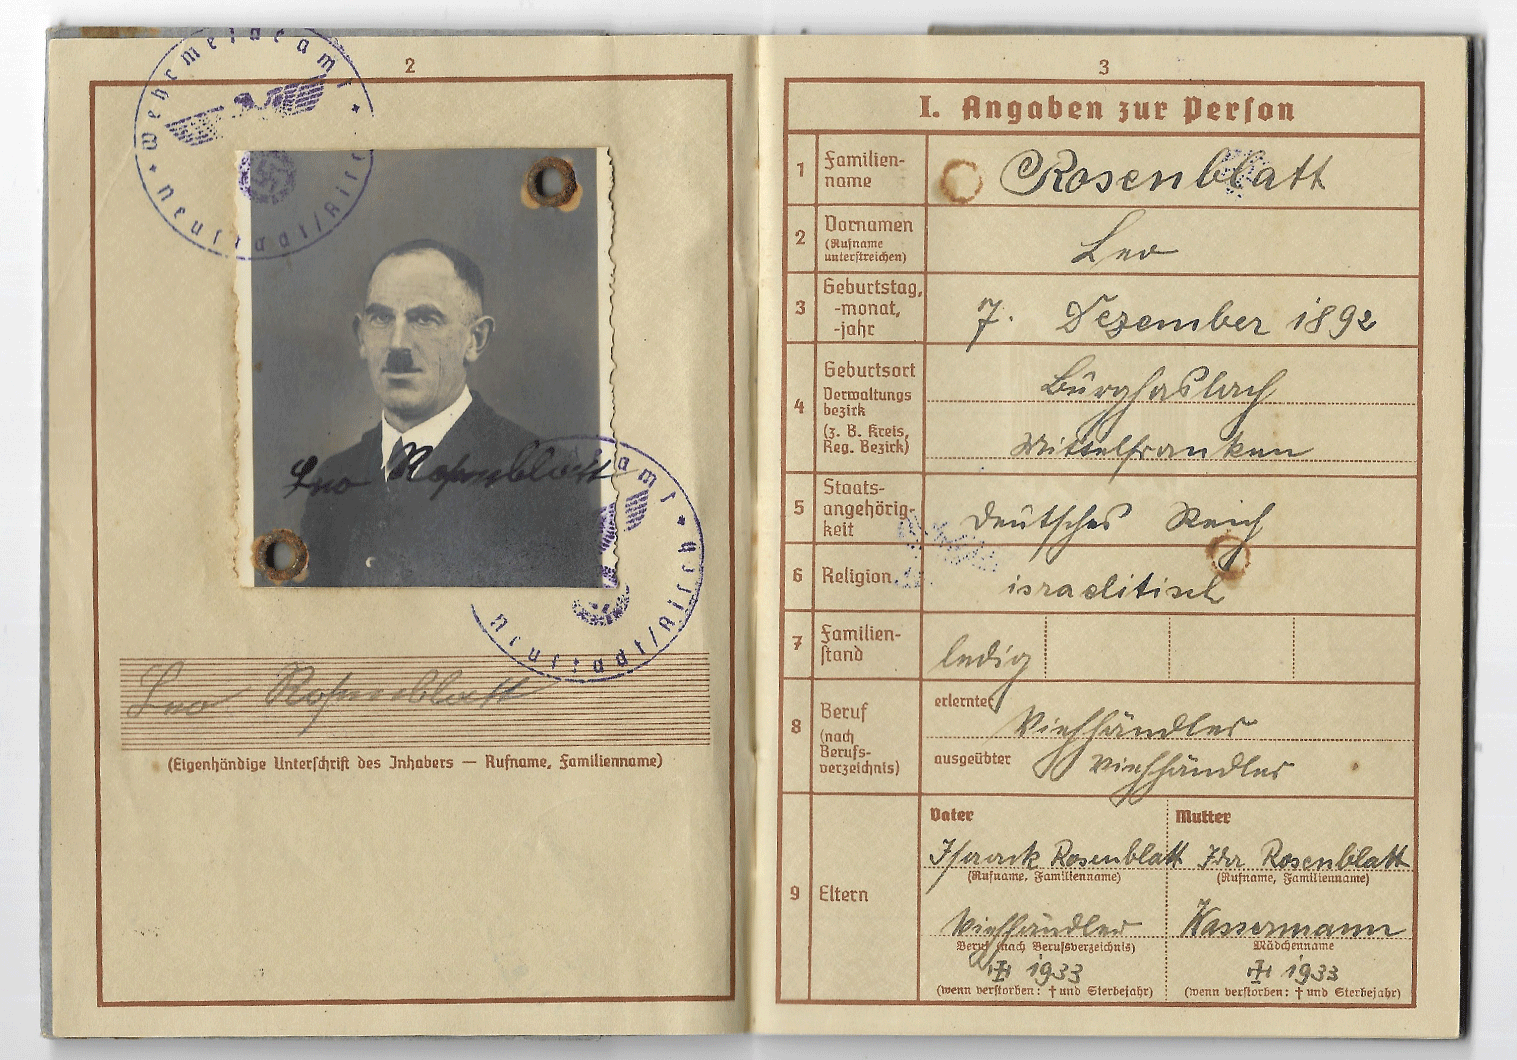 2
Wehrmeldeamt
Neustadt/Aisch
Leo Rosenblatt
Wehrmeldeamt
Neustadt/Aisch
Leo Rosenblatt
(Eigenhändige Unterschrift des Inhabers — Rufname, Familienname)
3
I. Angaben zur Person
1 Familien-
name
Rosenblatt
2 Vornamen
(Rufname
unterstreichen)
Leo
3 Geburtstag,
-monat,
-jahr
7. Dezember 1892
4 Geburtsort
Verwaltungs
bezirk
(z. B. Kreis,
Reg. Bezirk)
Burghaslach
Mittelfranken
5 Staats-
angehörig-
keit
Deutsches Reich
6 Religion
israelitisch
7 Familien-
stand
ledig
8 Beruf
(nach
Berufs-
verzeichnis)
erlernter Viehhändler
ausgeübter Viehhändler
9 Eltern
Vater
Isaack Rosenblatt
(Rufname, Familienname)
Viehhändler
Beruf (nach Berufsverzeichnis)
1933
(wenn verstorben: † und Sterbejahr)
Mutter
Ida Rosenblatt
(Rufname, Familienname)
Wassermann
Mädchenname
1933
(wenn verstorben: † und Sterbejahr)